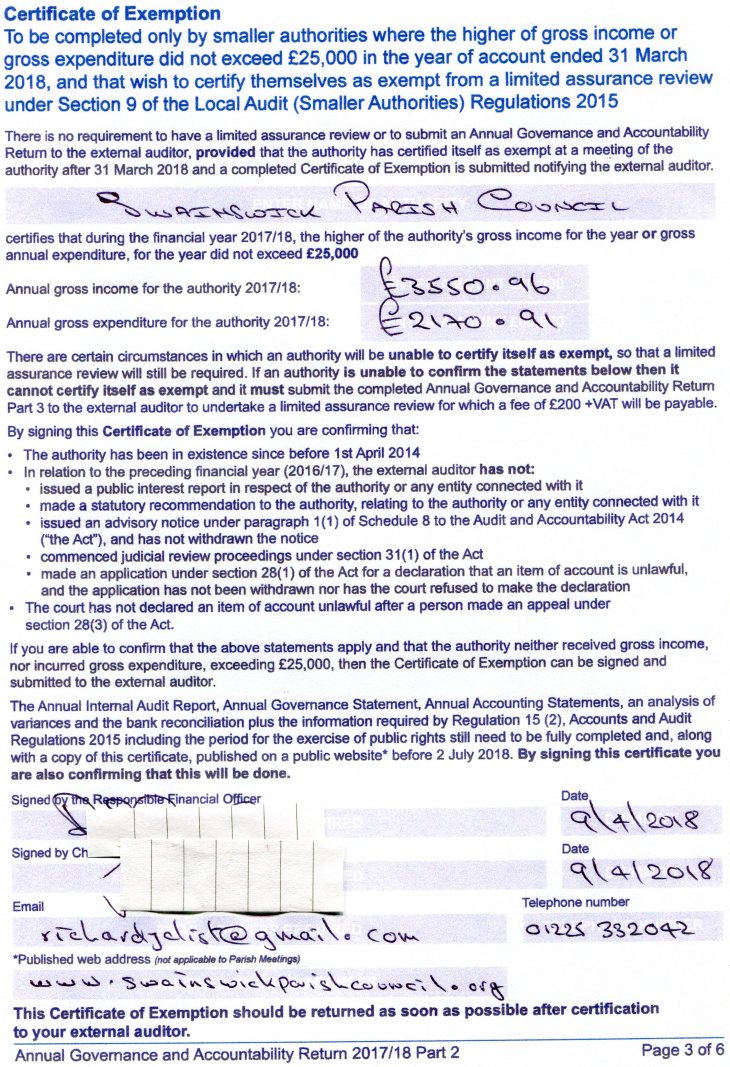 Certificate of Exemption
To be completed only by smaller authorities where the higher of gross income or
gross expenditure did not exceed £25,000 in the year of account ended 31 March
2018, and that wish to certify themselves as exempt from a limited assurance review
under Section 9 of the Local Audit (Smaller Authorities) Regulations 2015
There is no requirement to have a limited assurance review or to submit an Annual Governance and Accountability
Return to the external auditor, provided that the authority has certified itself as exempt at a meeting of the
authority after 31 March 2018 and a completed Certificate of Exemption is submitted notifying the external auditor.
SWAINSWICK PARISH COUNCIL
certifies that during the financial year 2017/18, the higher of the authority's gross income for the year or gross
annual expenditure, for the year did not exceed £25,000
Annual gross income for the authority 2017/18: £3550.96
Annual gross expenditure for the authority 2017/18: £2170.91
There are certain circumstances in which an authority will be unable to certify itself as exempt, so that a limited
assurance review will still be required. If an authority is unable to confirm the statements below then it
cannot certify itself as exempt and it must submit the completed Annual Governance and Accountability Return
Part 3 to the external auditor to undertake a limited assurance review for which a fee of £200 +VAT will be payable.
By signing this Certificate of Exemption you are confirming that:
• The authority has been in existence since before 1st April 2014
• In relation to the preceding financial year (2016/17), the external auditor has not:
• issued a public interest report in respect of the authority or any entity connected with it
• made a statutory recommendation to the authority, relating to the authority or any entity connected with it
• issued an advisory notice under paragraph 1(1) of Schedule 8 to the Audit and Accountability Act 2014
("the Act"), and has not withdrawn the notice
• commenced judicial review proceedings under section 31(1) of the Act
• made an application under section 28(1) of the Act for a declaration that an item of account is unlawful,
and the application has not been withdrawn nor has the court refused to make the declaration
• The court has not declared an item of account unlawful after a person made an appeal under
section 28(3) of the Act.
If you are able to confirm that the above statements apply and that the authority neither received gross income,
nor incurred gross expenditure, exceeding £25,000, then the Certificate of Exemption can be signed and
submitted to the external auditor.
The Annual Internal Audit Report, Annual Governance Statement, Annual Accounting Statements, an analysis of
variances and the bank reconciliation plus the information required by Regulation 15 (2), Accounts and Audit
Regulations 2015 including the period for the exercise of public rights still need to be fully completed and, along
with a copy of this certificate, published on a public website* before 2 July 2018. By signing this certificate you
are also confirming that this will be done.
Signed by the Responsible Financial Officer Date
9/4/2018
Signed by Ch Date
9/4/2018
Email Telephone number
01225 332042
*Published web address (not applicable to Parish Meetings)
www.swainswickparishcouncil.org
This Certificate of Exemption should be returned as soon as possible after certification
to your external auditor.
Annual Governance and Accountability Return 2017/18 Part 2 Page 3 of 6